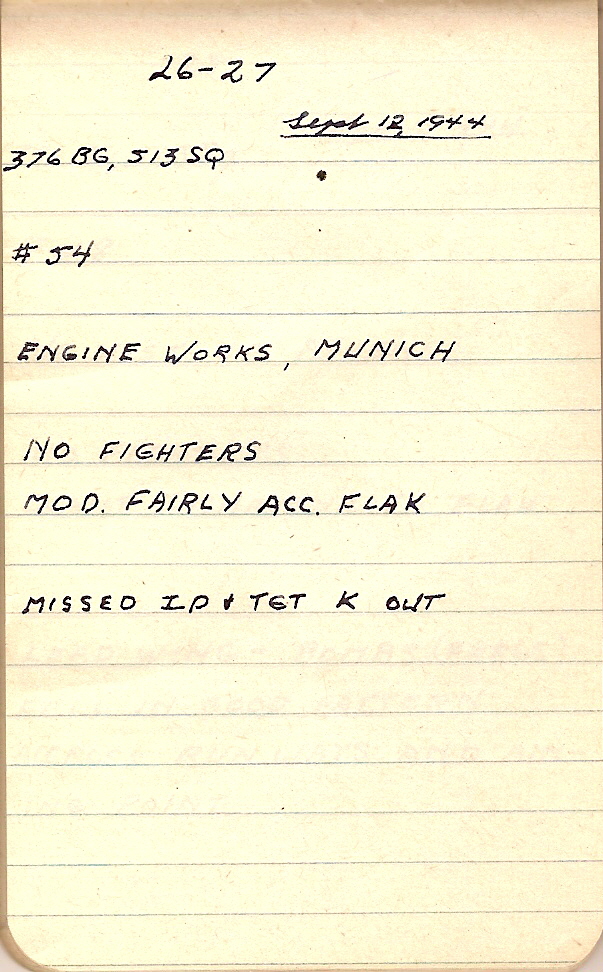 26-27
Sept 12, 1944
376 BG, 513 SQ
# 54
ENGINE WORKS, MUNICH
NO FIGHTERS
MOD. FAIRLY ACC. FLAK
MISSED IP & TGT K OUT